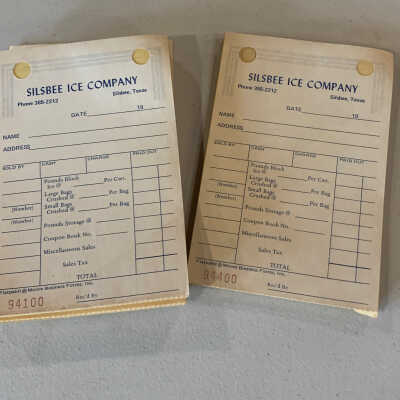 SILSBEE ICE COMPANY
Phone 385-2212
Silsbee, Texas
DATE 19
NAME
ADDRESS
SOLD BY CASH CHARGE PAID OUT
Pounds Block
Ice @ Per Cwt.
Large Bags
(Number) Crushed @ Per Bag
Small Bags
(Number) Crushed @ Per Bag
Pounds Storage @
Coupon Book No.
Miscellaneous Sales
Sales Tax
TOTAL
94100 Rec'd By
Flatpakit @ Moore Business Forms, Inc.
SILSBEE ICE COMPANY
Phone 385-2212
Silsbee, Texas
DATE 19
NAME
ADDRESS
SOLD BY CASH CHARGE PAID OUT
Pounds Block
Ice @ Per Cwt.
Large Bags
(Number) Crushed @ Per Bag
Small Bags
(Number) Crushed @ Per Bag
Pounds Storage @
Coupon Book No.
Miscellaneous Sales
Sales Tax
TOTAL
94100 Rec'd By
Flatpakit @ Moore Business Forms, Inc.